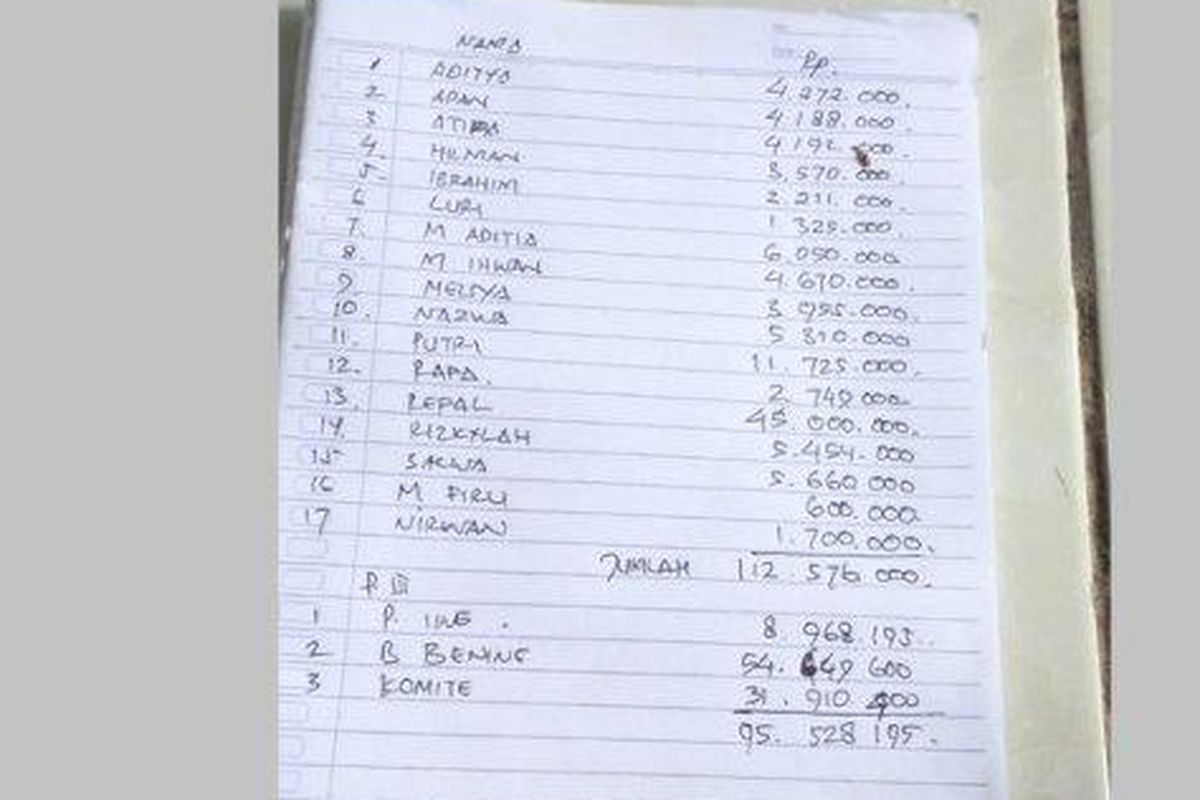 NAMA Rp.
1 ADITYA 4.272.000.
2 ADAN 4 188.000.
3 4 192 000.
4. HILMAN 3.570.000.
5. IBRAHIM 2 211.000.
6 LURI 1 325.000.
7. M ADITIA 6 050.000
8. M IHWAN 4.670.000.
9. MELIYA 3 955.000.
10. NAZWA 5 310.000
11. PUTRI 11.725.000.
12. RAPA. 2 749 000
13. REPAL 45 000.000.
14. RIZKYLAH 5.454.000
15 SALWA 5.660 000
16 M FIRLI 600.000
17 NIRWAN 1.700.000.
JUMLAH 112 576 000.
P III
1 P. 8 968 195.
2 B BENING 54. 649 600
3 KOMITE 31. 910 400
95. 528 195.